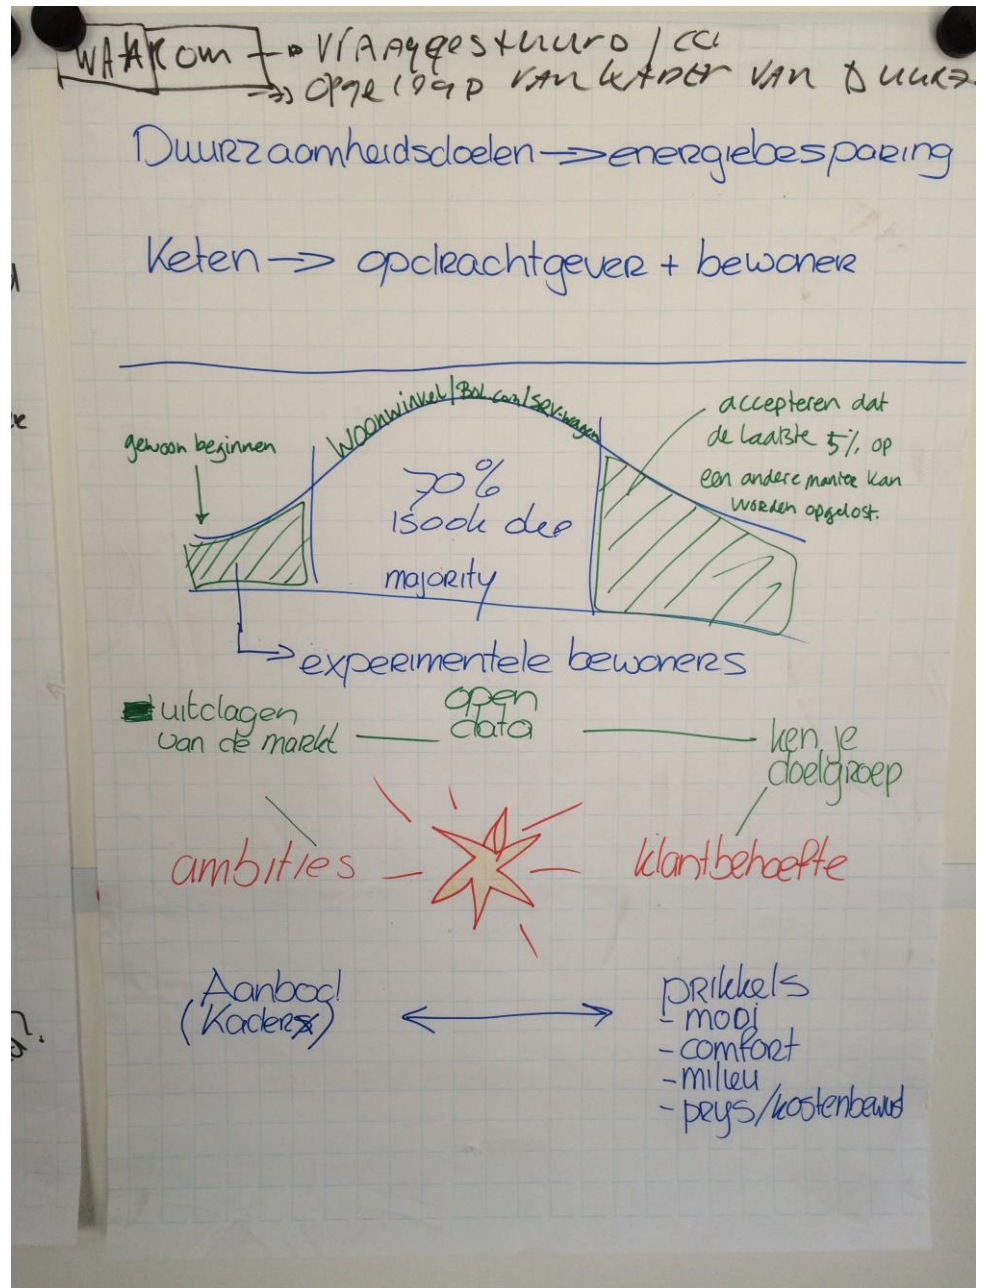 WAAROM → VRAAGGESTUURD / CC
→ OPGELEGD VAN KADER VAN DUURZ
Duurzaamheidsdoelen → energiebesparing
Keten → opdrachtgever + bewoner
woonwinkel / Bol.com / SRV-wagen
gewoon beginnen
accepteren dat
de laatste 5% op
een andere manier kan
worden opgelost.
70%
is ook de
majority
→ experimentele bewoners
uitdagen
van de markt
open
data
ken je
doelgroep
ambities
klantbehoefte
Aanbod
(Kaders)
prikkels
- mooi
- comfort
- milieu
- prijs/kostenbewust